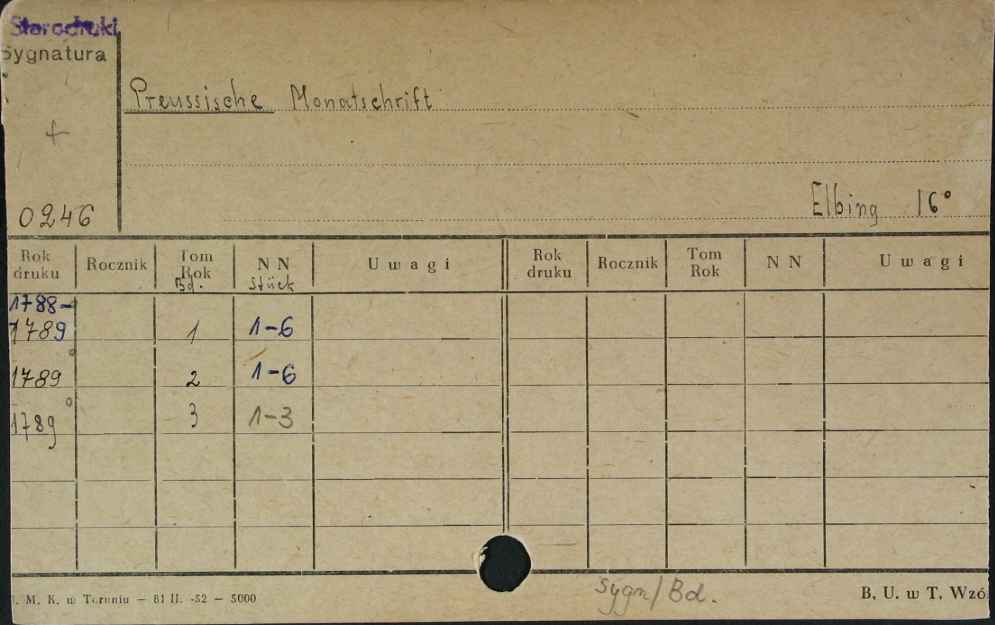 Starodruki
Sygnatura
Preussische Monatschrift
+
0246
Elbing 16°
Rok druku Rocznik Tom Rok Bd. NN Stück Uwagi Rok druku Rocznik Tom Rok NN Uwagi
1788-
1789 1 1-6
1789 2 1-6
1789 3 1-3
Sygn/Bd.
M. K. w Toruniu — 81 II. -52 — 5000
B. U. w T. Wzó